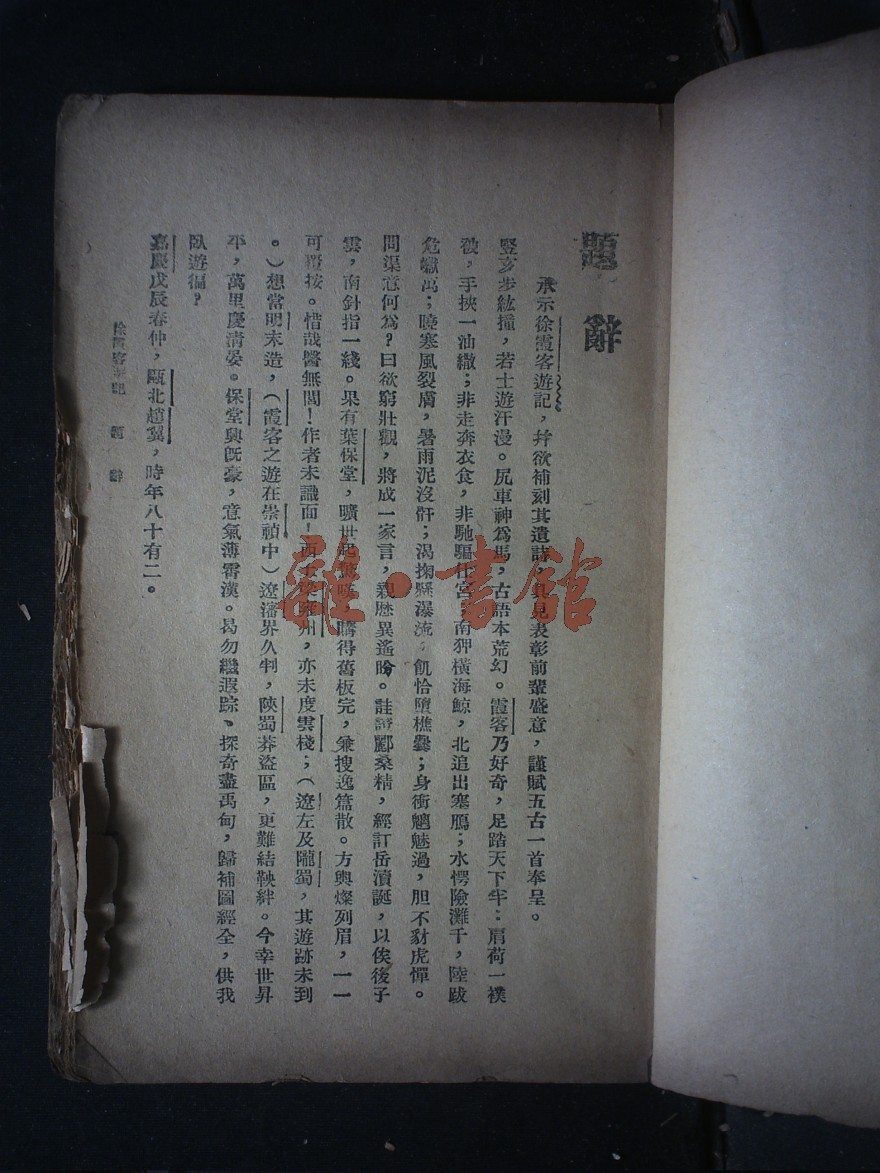 題辭
承示徐霞客遊記，幷欲補刻其遺詩，具見表彰前輩盛意，謹賦五古一首奉呈。
豎亥步紘撞，若士遊汗漫。尻車神爲馬，古語本荒幻。霞客乃好奇，足踏天下半：肩荷一襆
被，手挾一油繖；非走奔衣食，非馳驅仕宦，南狎橫海鯨，北追出塞鴈；水愕險灘千，陸跋
危巘萬；曉寒風裂膚，暑雨泥沒骭；渴掬懸瀑流，飢恰墮樵爨；身衝魑魅過，胆不豺虎憚。
問渠意何爲？曰欲窮壯觀，將成一家言，親歷異遙盼。註證酈桑精，經訂岳瀆誕，以俟後子
雲，南針指一綫。果有葉保堂，曠世起驚，購得舊板完，兼搜逸篇散。方輿燦列眉，一一
可覆按。惜哉醫無閭！作者未識面！西土梁雍州，亦未度雲棧；（遼左及隴蜀，其遊跡未到
。）想當明末造，（霞客之遊在崇禎中）遼瀋界久判，陝蜀莽盜區，更難結鞅絆。今幸世昇
平，萬里慶清晏。保堂興旣豪，意氣薄霄漢。曷勿繼遐踪、探奇盡禹甸，歸補圖經全，供我
臥遊徧？
嘉慶戊辰春仲，甌北趙翼，時年八十有二。
徐霞客遊記 題辭
雜·書館